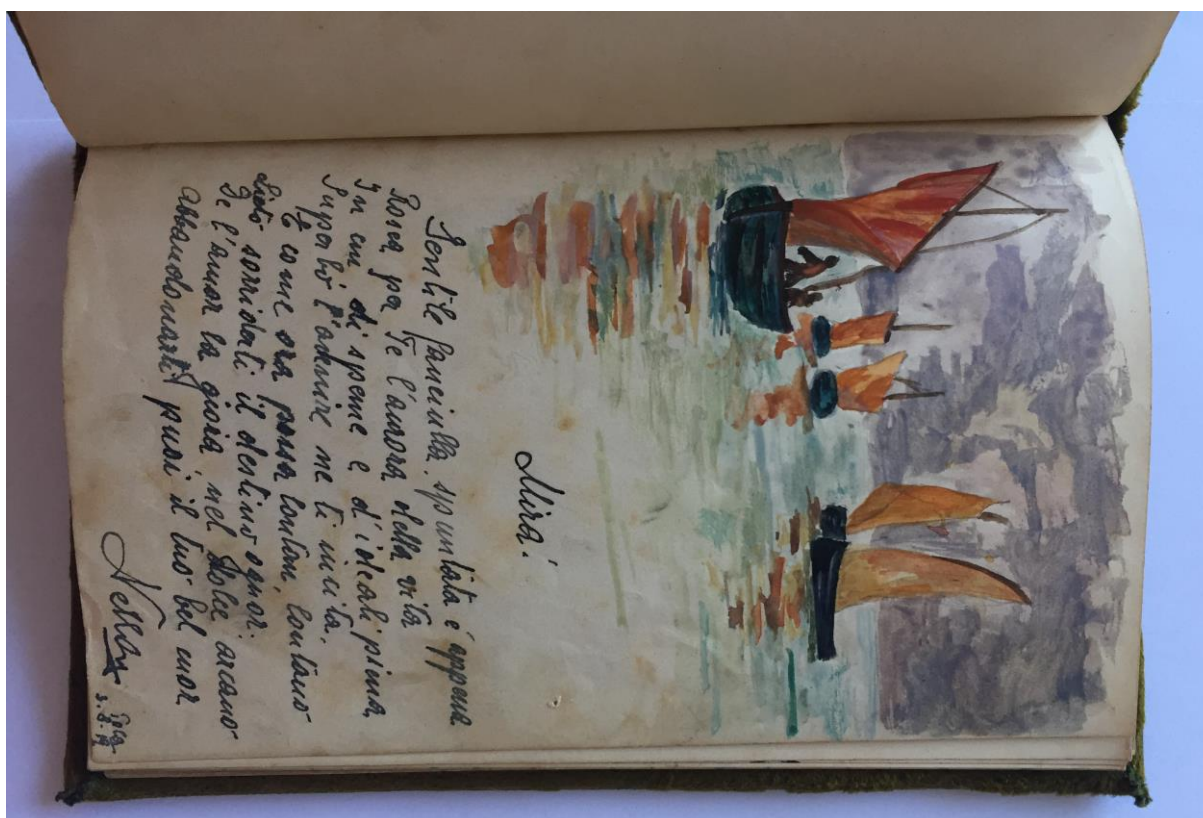 Mira!
Gentile fanciulla. spuntata é appena
Rosea pa Te l'aurora della vita
In cui di speme e d'ideali piena,
Superbo l'adnire ne ti incita.
E come ora passa lontan, lontano
Lieto sorridati il destino ognor:
De l'amor la gioia, nel dolce arcano
Abbandonarti puoi il tuo bel cuor